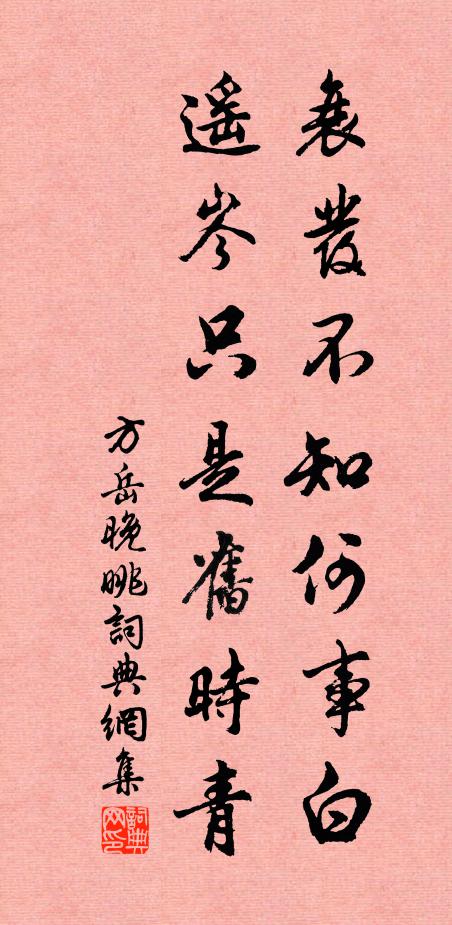 衰發不知何事白
遥岑只是舊時青
方岳晚眺詞典網集
詞典网印